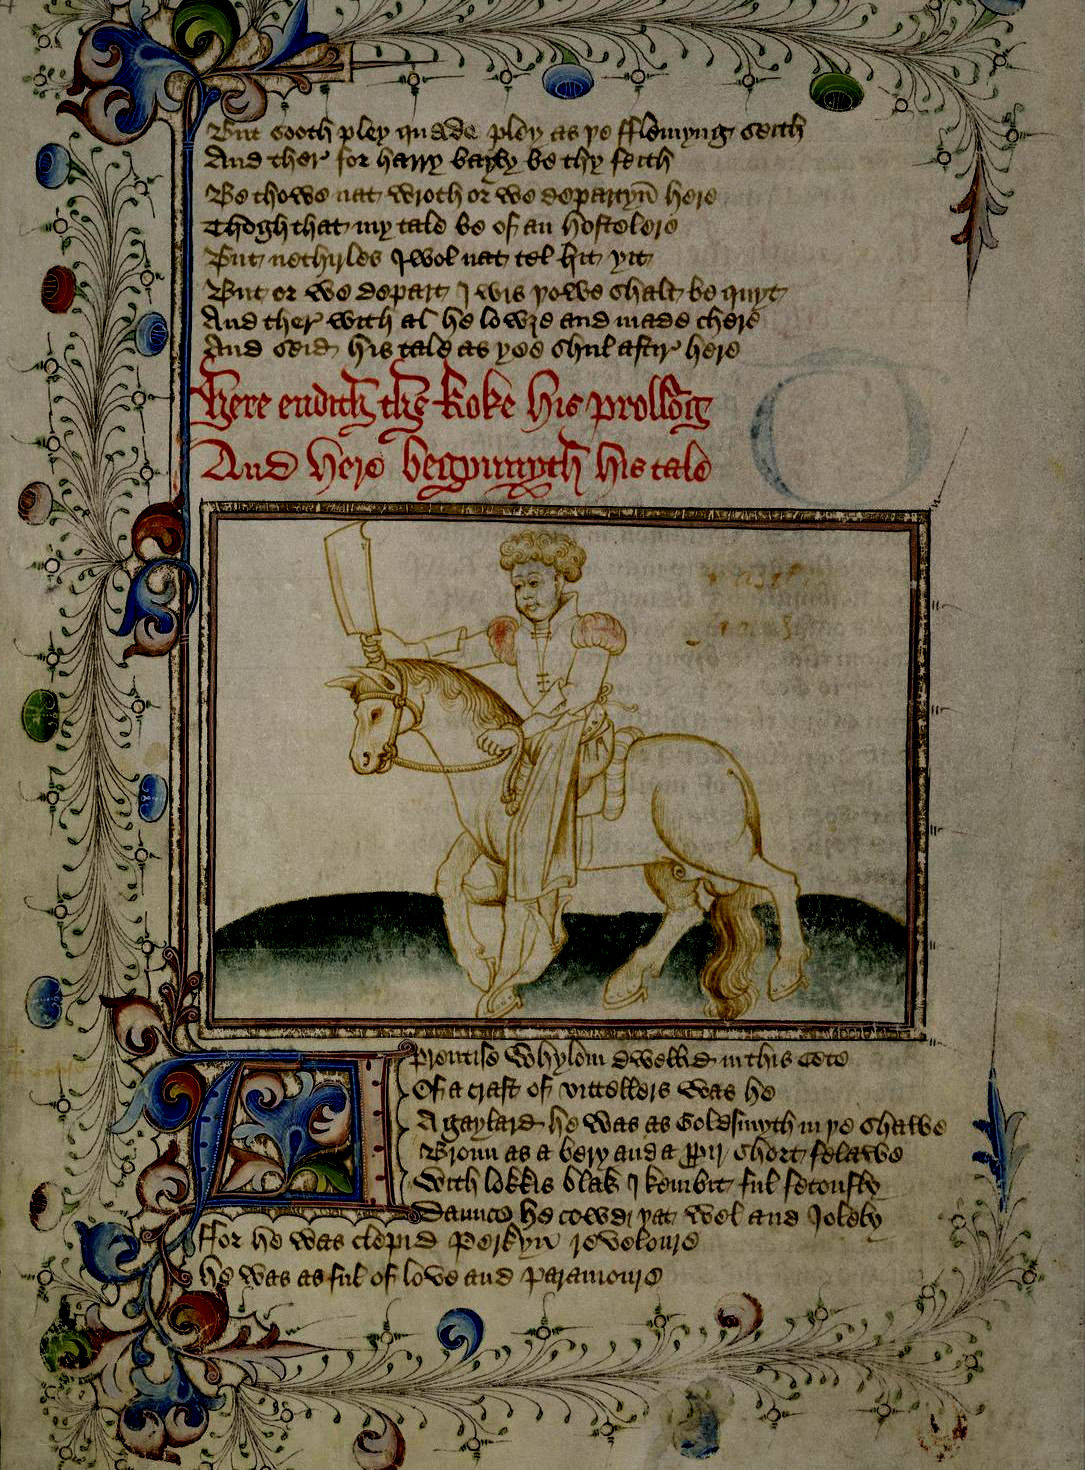 But sooth pley quade pley as þe fflemyng seith
And ther for harry bayly be thy feith
Be thowe nat wroth or we departyn here
Thogh that my tale be of an hostelere
But nethirles I wol nat tel hit yit
But or we depart I wis yowe shalt be quyt
And ther with al he lowȝe and made chere
And seid his tale as yoe shul aftir here
Here endith the Koke his prollog
And here begynnyth his tale
Aprentise whylom dwellid in this cete
Of a craft of vittellers was he
A gaylard he was as Goldfinyth in þe shawe
Broun as a bery and a ppir short felawe
With lokkis blak I kembit ful fetously
Daunce he cowd þat wel and Jolely
ffor he was clepid Perkyn reveloure
he was as ful of love and paramoure